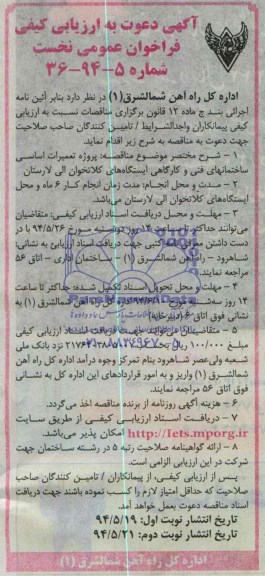 آگهی دعوت به ارزیابی کیفی
فراخوان عمومی نخست
شماره ۵-۹۴-۳۶
اداره کل راه آهن شمالشرق(۱) در نظر دارد بنابر آئین نامه
اجرائی بند ج ماده ۱۲ قانون برگزاری مناقصات نسبت به ارزیابی
کیفی پیمانکاران واجدالشرایط / تامین کنندگان صاحب صلاحیت
جهت دعوت به مناقصه به شرح زیر اقدام نماید
۱ - شرح مختصر موضوع مناقصه: پروژه تعمیرات اساسی
ساختمانهای فنی و کارگاهی ایستگاه‌های کلاتخوان الی لارستان
۲ - مدت و محل انجام: مدت زمان انجام کار ۶ ماه و محل
ایستگاه‌های کلاتخوان الی لارستان می‌باشد.
۳ - مهلت و محل دریافت اسناد ارزیابی کیفی: متقاضیان
می‌توانند حداکثر تا ساعت ۱۴ روز دوشنبه مورخ ۹۴/۵/۲۶ با در
دست داشتن معرفی نامه کتبی جهت دریافت اسناد ارزیابی به نشانی:
شاهرود - راه آهن شمالشرق (۱) - ساختمان اداری - اتاق ۵۶
مراجعه نمایند.
۴ - مهلت و محل تحویل اسناد تکمیل شده: حداکثر تا ساعت
۱۴ روز سه‌شنبه مورخ اداره کل راه آهن شمالشرق (۱) به
نشانی فوق اتاق (دبیرخانه)
۵ - متقاضیان می‌توانند جهت دریافت اسناد ارزیابی کیفی
مبلغ ۱۰۰/۰۰۰ ریال به نزد بانک ملی
شعبه ولی‌عصر شاهرود بنام تمرکز وجوه درآمد اداره کل راه آهن
شمالشرق (۱) واریز و به امور قراردادهای این اداره کل به نشانی
فوق اتاق ۵۶ مراجعه نمایند.
۶ - هزینه آگهی روزنامه از برنده مناقصه اخذ می‌گردد.
۷ - دریافت اسناد ارزیابی کیفی از طریق سایت
http://Iets.mporg.ir امکان پذیر می‌باشد.
۸ - ارائه گواهینامه صلاحیت رتبه ۵ در رشته ساختمان جهت
شرکت در این ارزیابی الزامی است.
پس از ارزیابی کیفی، از پیمانکاران / تامین کنندگان صاحب
صلاحیت که حداقل امتیاز لازم را کسب نموده باشند جهت دریافت
اسناد مناقصه دعوت بعمل خواهد آمد.
تاریخ انتشار نوبت اول: ۹۴/۵/۱۹
تاریخ انتشار نوبت دوم: ۹۴/۵/۲۱
اداره کل راه آهن شمالشرق (۱)